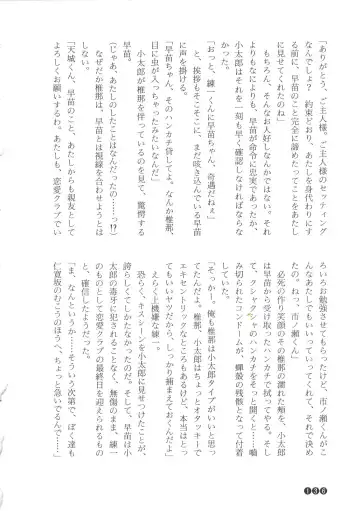 「ありがとう、ご主人様。ご主人様のセッティング
なんでしょ？　約束どおり、あたしを身代わりにす
る前に、早苗のこと完全に諦めたってことをあたし
に見せてくれたのね」
もちろん、そんなお人好しなんかではない。それ
よりもなによりも、早苗が命令に忠実であったか、
小太郎はそれを一刻も早く確認しなければならな
かった。
「おっと、練一くんに早苗ちゃん、奇遇だねぇ」
と、挨拶もそこそこに、まだ咳き込んでいる早苗
に声を掛ける。
「早苗ちゃん、そのハンカチ貸してよ。なんか椎那、
目に虫が入っちゃったみたいなんだ」
小太郎が椎那を伴っているのを見て、驚愕する
早苗。
（じゃあ、あたしのしたことはなんだったの……っ!?）
なぜだか椎那は、早苗とは視線を合わせようとは
しない。
「天城くん、早苗のこと、あたしからも親友として
よろしくお願いするわ。あたしも、恋愛クラブでい
ろいろ勉強させてもらったけど、市ノ瀬くんがこ
んなあたしでもいいっていってくれて、それで決め
たの。ねっ、市ノ瀬くん」
必死の作り笑顔のその椎那の濡れた頬を、小太郎
は早苗から受け取ったハンカチで拭ってやる。そし
て、クシャクシャのハンカチをそっと開くと……噛
み切られたコンドームが、蟬の残骸となって付着
していた。
「そっかー。俺も椎那は小太郎タイプがいいと思っ
てたんだよ。椎那、小太郎はちょっとオタッキーで
エキセントリックなところもあるけど、本当はとっ
てもいいヤツだから、しっかり捕まえておくんだよ」
えらく上機嫌な練一。
恐らく、キスシーンを小太郎に見せつけたことが、
誇らしくてしかたなかったのだろう。そして、早苗は小
太郎の毒牙に犯されることなく、無傷のまま、練一
のものとして恋愛クラブの最終日を迎えられるもの
と、確信したようだった。
「ま、なんというか……そういう次第で、ぼく達も
仁寛版のむこうのほうへ、ちょっと急いでるんで…」
136